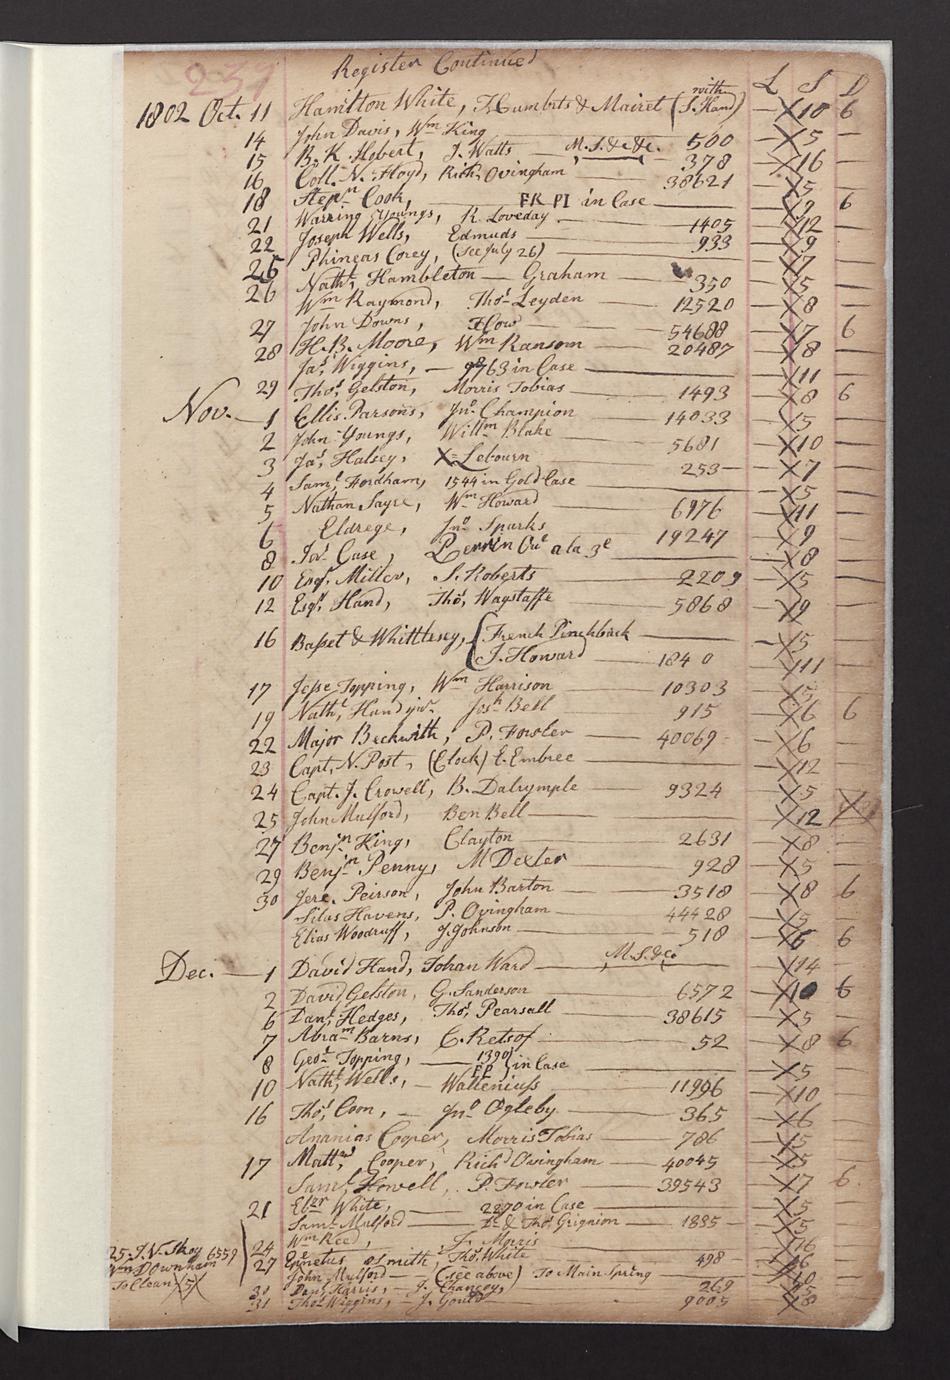 231
Register Continued
L S D
1802 Oct. 11 Hamilton White, Humbrts & Mairet (with S. Hand) — 10 6
14 John Davis, Wm King — 500 — 5 —
15 B. K. Hobert, J. Watts — M.S. &c &c. 378 — 16 —
16 Coll. N. Floyd, Richd Ovingham — 38621 — 5
18 Stepn Cook, — FR PI in Case — 9 6
21 Warring Youngs, R. Loveday — 1405 — 12 —
22 Joseph Wells, Edmuds — 933 — 9 —
25 Phineas Corey, (See July 26) — 7 —
26 Nathl Hambleton — Graham — 350 — 5 —
Wm Raymond, Thos Leyden — 12520 — 8 —
27 John Downs, Flow — 54688 — 7 6
28 H. B. Moore, Wm Ransom — 20487 — 8 —
Jas Wiggins, — 9763 in Case — 11 —
29 Thos Gelston, Morris Tobias — 1493 — 8 6
Nov. — 1 Ellis Parsons, Jno Champion — 14033 — 5 —
2 John Youngs, Willm Blake — 5681 — 10 —
3 Jas Halsey, X = Lebourn — 253 — 7 —
4 Saml Fordham, 1544 in Gold Case — 5 —
5 Nathan Sayre, Wm Howard — 6976 — 11 —
6 Eldrege, Jno Sparks — 19247 — 9 —
8 Case, Perrin a la 3e — 8 —
10 Esqr Miller, S. Roberts — 2209 — 5 —
12 Esqr Hand, Thos Wagstaffe — 5868 — 9 —
16 Basset & Whittlesey, { French Pinchback — 5 —
J. Howard — 1840 — 11 —
17 Jesse Topping, Wm Harrison — 10303 — 5 —
19 Nathl Hand junr. Josh Bell — 915 — 6 6
22 Major Beckwith, P. Fowler — 40069 — 6 —
23 Capt. N. Post, (Clock) E. Embree — 12 —
24 Capt. J. Crowell, B. Dalrymple — 9324 — 5
25 John Mulford, Ben Bell — 12
27 Benjn King, Clayton — 2631 — 8 —
29 Benjn Penny, M Dexter — 928 — 5 —
30 Jere. Peirson, John Barton — 3518 — 8 6
Silas Havens, P. Ovingham — 44428 — 5 —
Elias Woodruff, J. Johnson — 518 — 6 6
Dec. — 1 David Hand, Johan Ward — M.S. &c — 14 —
2 David Gelston, G. Sanderson — 6572 — 10 6
6 Danl Hedges, Thos Pearsall — 38615 — 5 —
7 Abram Barns, C. Retsof — 52 — 8 6
8 Geo. Topping, — 1390 PP } in Case — 5 —
10 Nathl Wells, — Walleniuss — 11996 — 10 —
16 Thos Coon, — Jno Ogleby — 365 — 6 —
Ananias Cooper, Morris Tobias — 786 — 5 —
17 Mattw Cooper, Richd Ovingham — 40045 — 5 —
Saml Howell, P. Fowler — 39543 — 7 6
21 Ebzr White, — 2270 in Case — 5 —
Saml Mulford — Dd & Thos Grignion — 1885 — 5 —
24 Wm Reed, — J. Morris — 16 —
27 Epinetus Smith, Thos White — 498 — 6 —
John Mulford — (See above) To Main Spring — 10 —
30 Danl Harris, — J. Chancey, — 269
31 Thos Wiggins, — J. Gould — 9005 — 8
25 6559
Wm Downham
To Clean 5